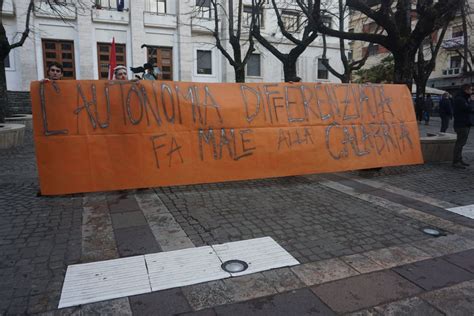 L'AUTONOMIA DIFFERENZIATA
FA MALE ALLA CALABRIA